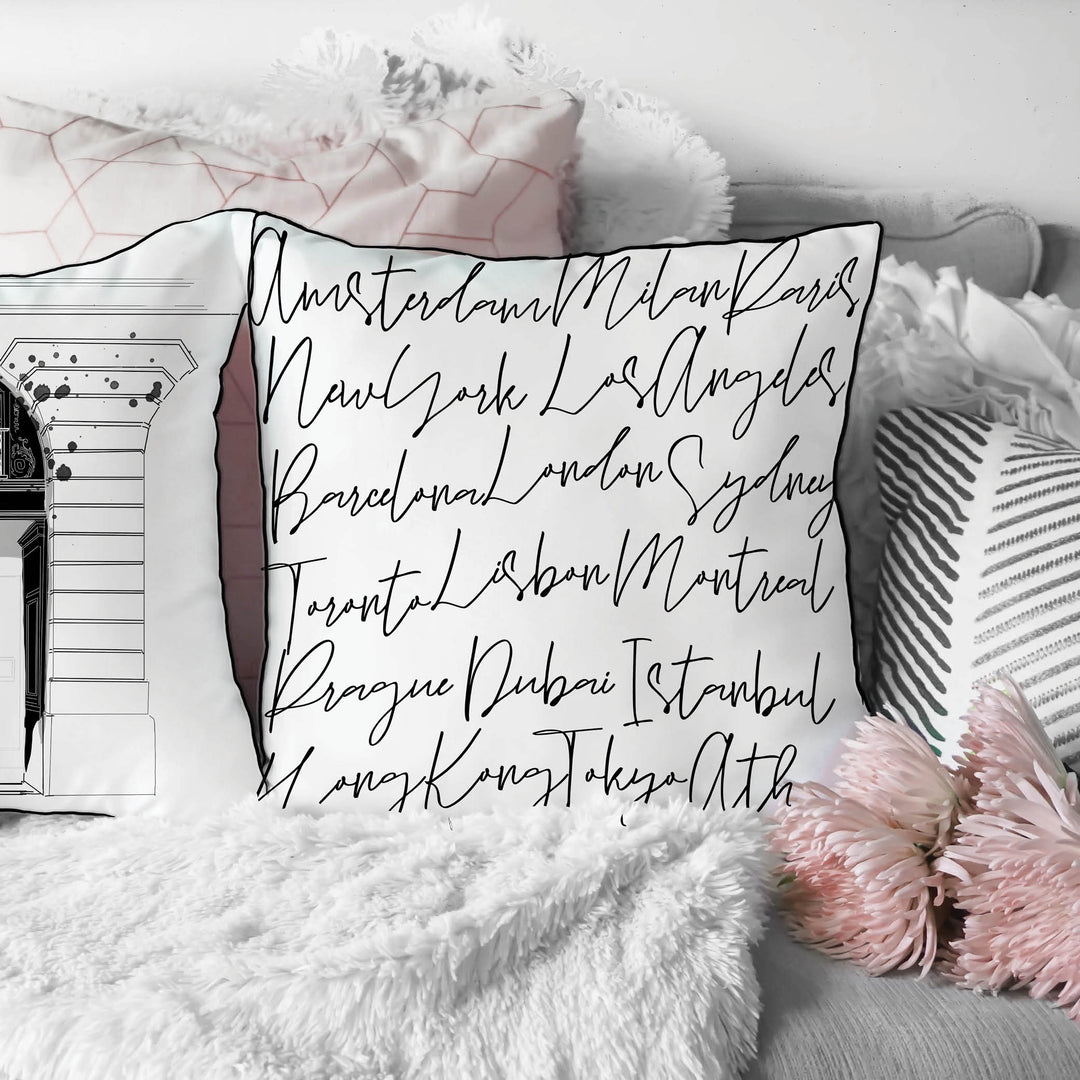 Amsterdam Milan Paris
New York Los Angeles
Barcelona London Sydney
Toronto Lisbon Montreal
Prague Dubai Istanbul
Hong Kong Tokyo Ath